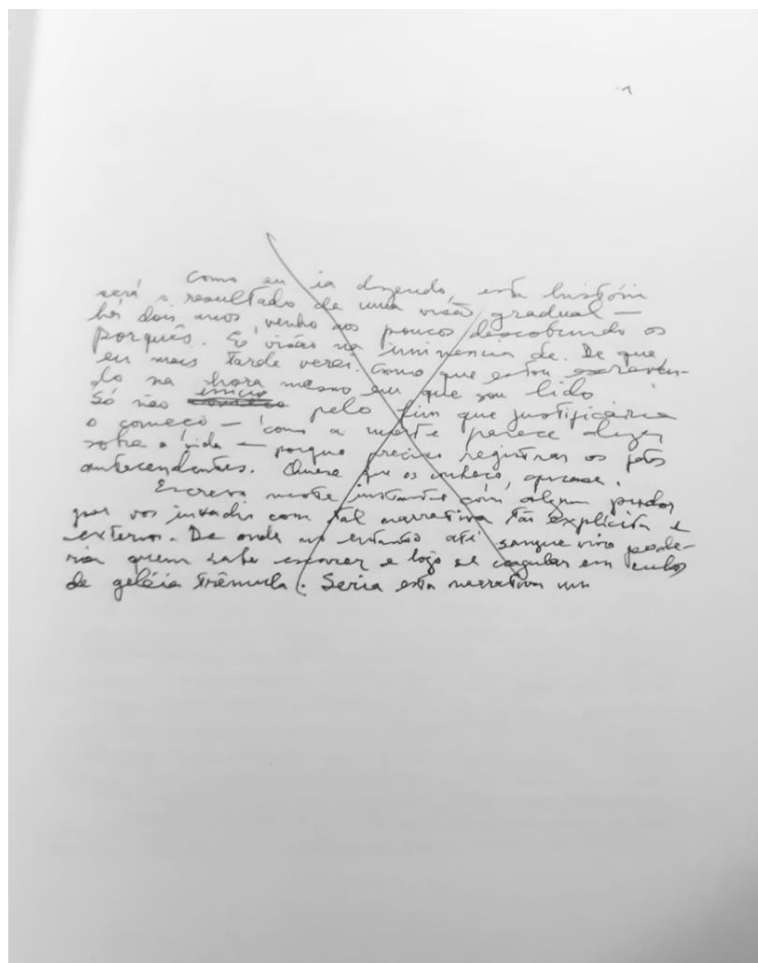 Como eu ia dizendo, esta história
será o resultado de uma visão gradual —
há dois anos venho aos poucos descobrindo os
porquês. É visão na iminência de. De que
eu mais tarde verei. Como que estou escreven-
do na hora mesmo em que sou lido.
Só não início pelo fim que justificaria
o começo — como a morte parece dizer
sobre a vida — porque preciso registrar os fatos
antecendentes. Chuva que os conheço, quase.
Escrevo neste instante com algum pudor
por vos invadir com tal narrativa tão explícita e
externa. De onde no entanto até sangue vivo pode-
ria quem sabe escorrer e logo se coagular em cubos
de geléia trêmula. Seria esta narrativa um